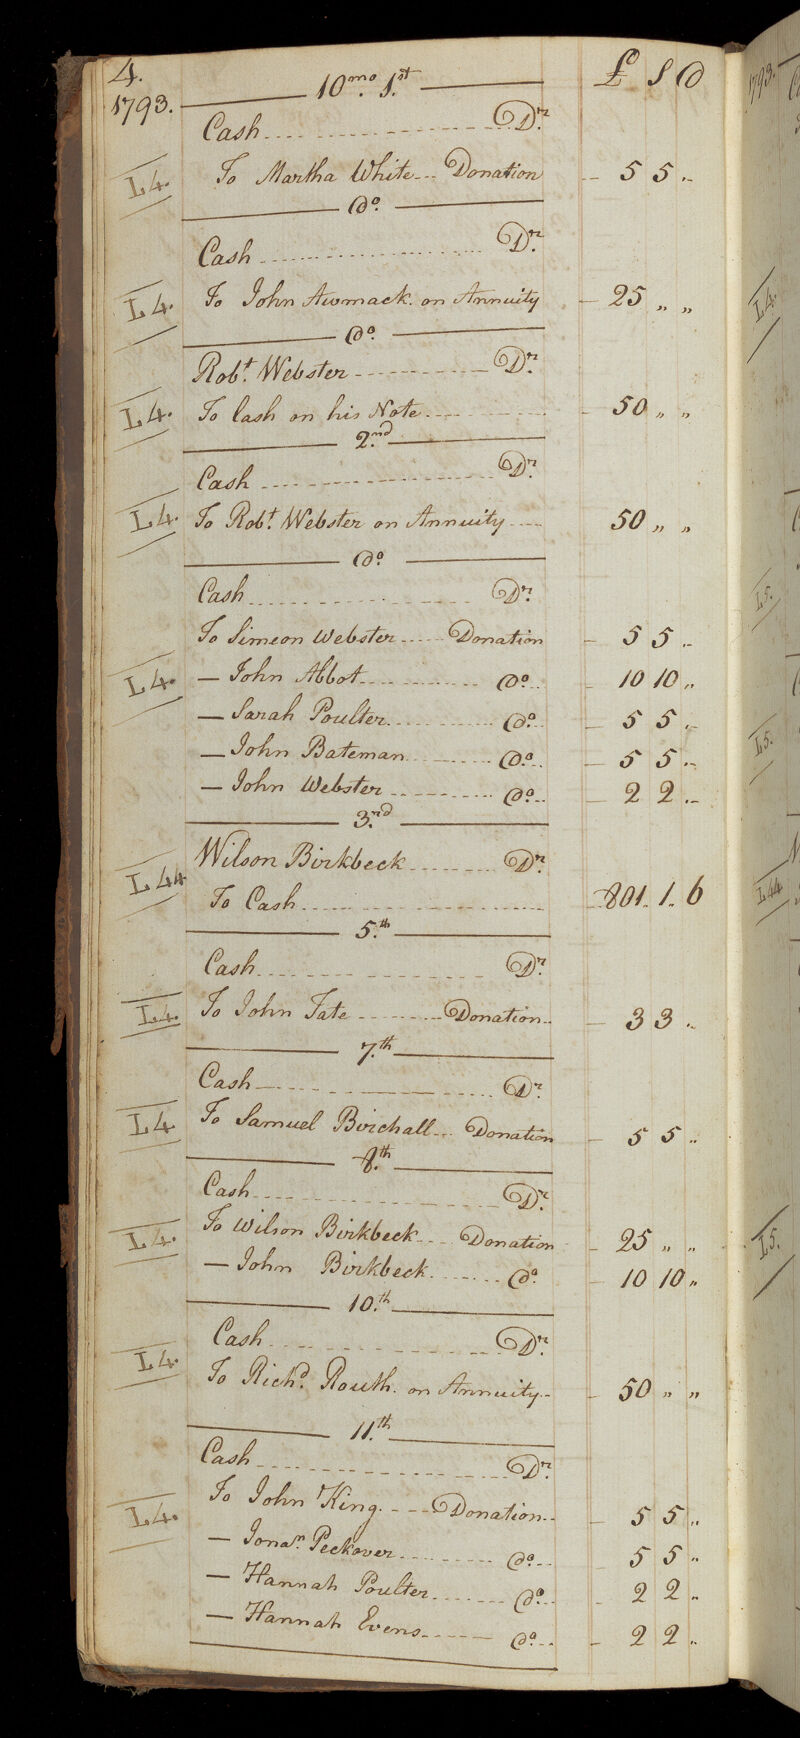 4.
1793. 10mo. 1.st £ S D
Cash Dr.
L4. To Martha White Donation 5 5 "
Do.
Cash Dr.
L4. To John Awmack on Annuity 25 " "
Do.
Robt. Webster Dr.
L4. To Cash on his Note 50 " "
2.nd
Cash Dr.
L4. To Robt. Webster on Annuity 50 " "
Do.
Cash Dr.
To Simeon Webster Donation 5 5 "
L4. — John Abbot Do. 10 10 "
— Sarah Poulter Do. 5 5 "
— John Bateman Do. 5 5 "
— John Webster Do. 2 2 "
3.rd
Wilson Birkbeck Dr.
L44 To Cash 801 " 1 " 6
5.th
Cash Dr.
L4. To John Tate Donation 3 3 "
7.th
Cash Dr.
L4 To Samuel Birchall Donation 5 5 "
8.th
Cash Dr.
L4. To Wilson Birkbeck Donation 25 " "
— John Birkbeck Do. 10 10 "
10.th
Cash Dr.
L4. To Richd. Routh on Annuity 50 " "
11.th
Cash Dr.
L4. To John King Donation 5 5 "
— Jonan. Peckover Do. 5 5 "
— Hannah Poulter Do. 2 2 "
— Hannah Evens Do. 2 2 "
1793.
L4.
L5.
L5.
L44
L5.